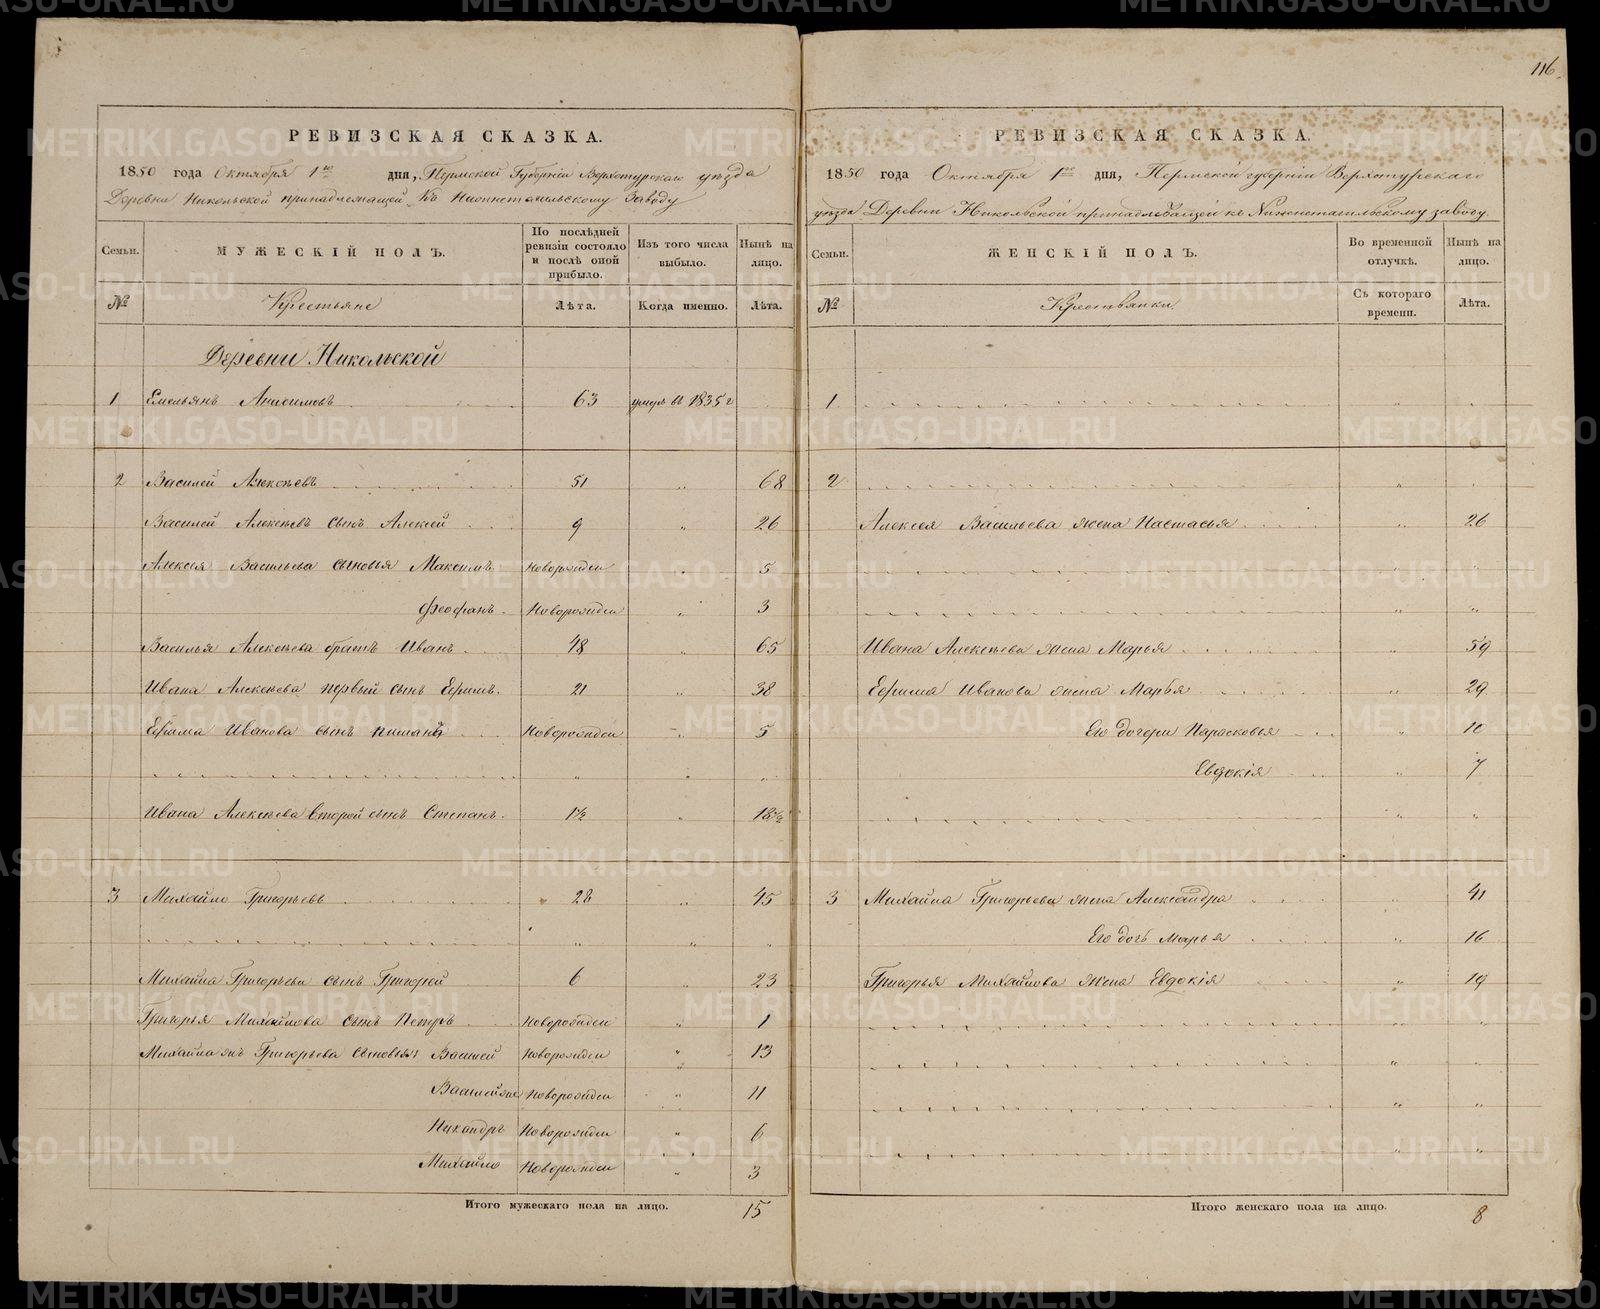 116.
РЕВИЗСКАЯ СКАЗКА.
1850 года Октября 1го дня, Пермской Губерніи Верхотурскаго уѣзда
Деревни Никольской принадлежащей къ Нижнетагильскому Заводу
Семьи. МУЖЕСКІЙ ПОЛЪ. По послѣдней ревизіи состояло и послѣ оной прибыло. Изъ того числа выбыло. Нынѣ на лицо.
№ Крестьяне Лѣта. Когда именно. Лѣта.
Деревни Никольской
1 Емельянъ Анисимовъ 63 умеръ въ 1835 г
2 Василей Алексѣевъ 51 " 68
Василей Алексѣевъ сынъ Алексей 9 " 26
Алексея Васильева сыновья Максимъ Новорожден " 5
Феофанъ Новорожден " 3
Василья Алексѣева братъ Иванъ 48 " 65
Ивана Алексѣева первый сынъ Ефимъ 21 " 38
Ефима Иванова сынъ Новорожден " 5
" " "
Ивана Алексѣева второй сынъ Степанъ 1½ " 18½
3 Михайло Григорьевъ 28 " 45
" " "
Михайла Григорьева сынъ Григорей 6 " 23
Григорья Михайлова сынъ Петръ Новорожден " 1
Михайла жъ Григорьева сыновья Василей Новорожден " 13
Василей же Новорожден " 11
Никандръ Новорожден " 6
Михайло Новорожден " 3
Итого мужескаго пола на лицо. 15
РЕВИЗСКАЯ СКАЗКА.
1850 года Октября 1го дня, Пермской губерніи Верхотурскаго
уѣзда Деревни Никольской принадлежащей къ Нижнетагильскому заводу.
Семьи. ЖЕНСКІЙ ПОЛЪ. Во временной отлучкѣ. Нынѣ на лицо.
№ Крестьянки Съ котораго времени. Лѣта.
1
2 "
Алексея Васильева жена Настасья " 26
"
" "
Ивана Алексѣева жена Марья " 59
Ефима Иванова жена Марья " 29
Его дочери Парасковья " 10
Евдокія " 7
" "
3 Михайла Григорьева жена Александра " 41
Его дочь Марья " 16
Григорья Михайлова жена Евдокія " 19
" "
" "
" "
" "
Итого женскаго пола на лицо. 8
METRIKI.GASO-URAL.RU